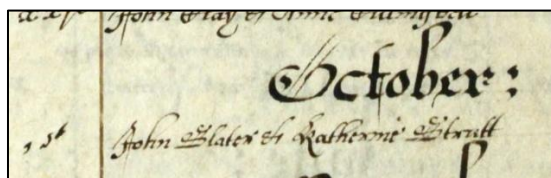 John Clay & Anne
October:
John Slater & Katherine Strutt